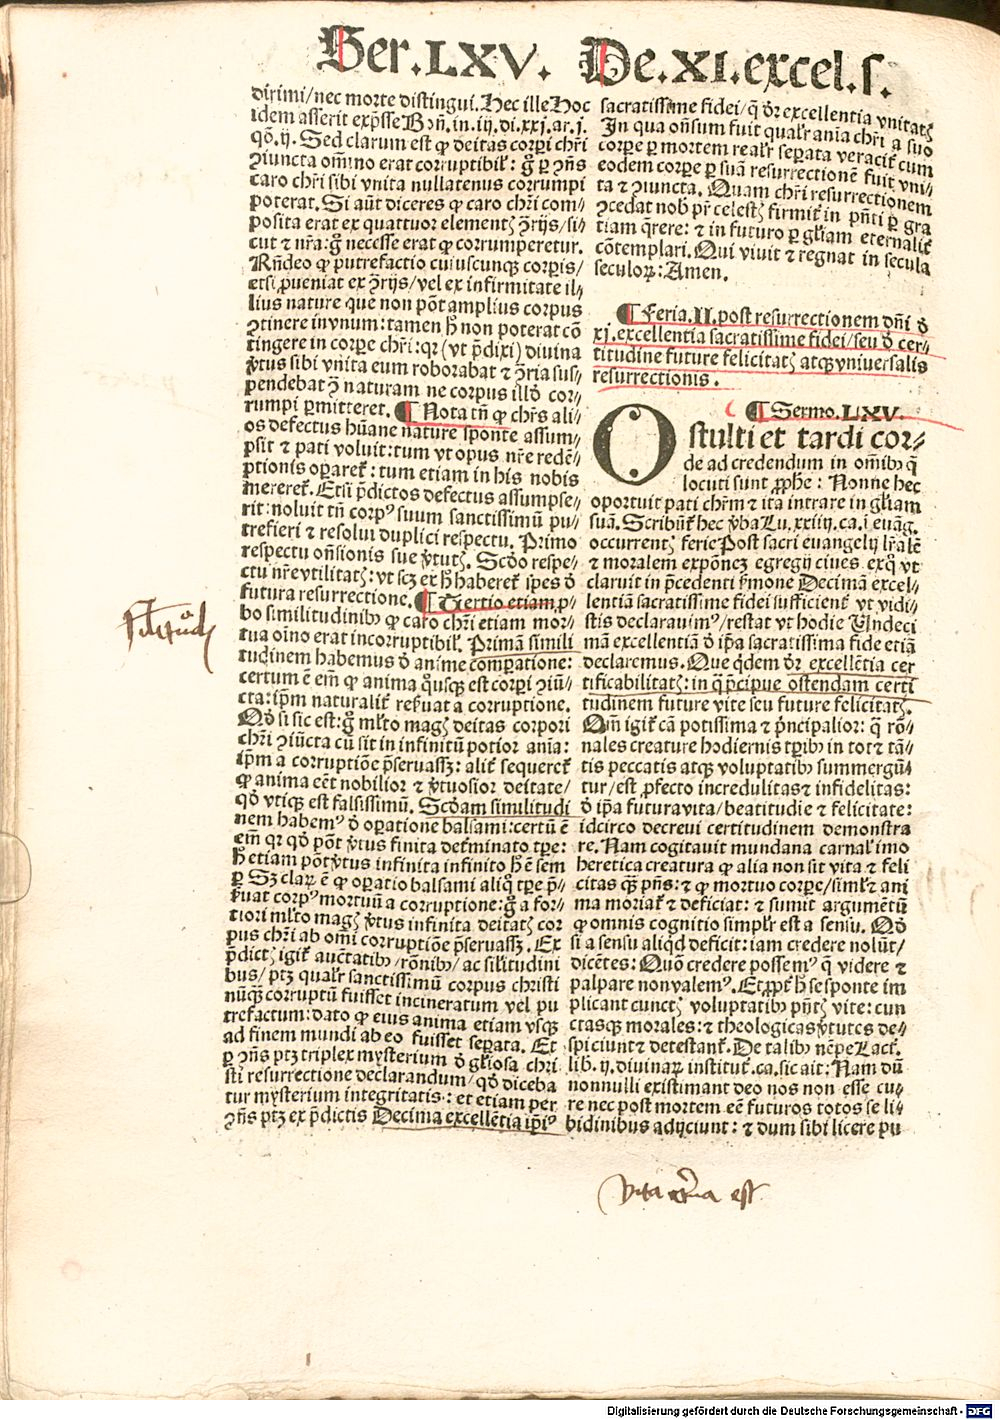 Ser.LXV. De.XI.excel.s.
dirimi/nec morte distingui. Hec ille Hoc
idem asserit exp̄sse Bon̄. in. iij. di. xxj. ar. j.
qō. ij. Sed clarum est ꝙ deitas corpi chr̄i
ꝯiuncta om̄ino erat corruptibil': g̊ ꝑ ꝯn̄s
caro chr̄i sibi vnita nullatenus corrumpi
poterat. Si aūt diceres ꝙ caro chr̄i com⸗
posita erat ex quattuor elementꝭ ꝯ̄rijs/si⸗
cut ⁊ nr̄a: g̊ necesse erat ꝙ corrumperetur.
Rn̄deo ꝙ putrefactio cuiuscunqꝫ corpis/
etsi ꝓueniat ex ꝯ̄rijs/vel ex infirmitate il⸗
lius nature que non pōt amplius corpus
ꝯtinere in vnum: tamen h̄ non poterat cō
tingere in corpe chr̄i: qꝛ (vt p̄dixi) diuina
v̄tus sibi vnita eum roborabat ⁊ ꝯ̄ria sus⸗
pendebat ꝯ̄ naturam ne corpus illđ cor⸗
rumpi ꝑmitteret. ¶ Nota tn̄ ꝙ chr̄s ali⸗
os defectus hūane nature sponte assum⸗
psit ⁊ pati voluit: tum vt opus nr̄e redē⸗
ptionis oꝑaret᷑: tum etiam in his nobis
mereret᷑. Etsi p̄dictos defectus assumpse⸗
rit: noluit tn̄ corpꝰ suum sanctissimū pu⸗
trefieri ⁊ resolui duplici respectu. Primo
respectu on̄sionis sue v̄tutꝭ. Scđo respe⸗
ctu nr̄e vtilitatꝭ: vt scꝫ ex h̄ haberet᷑ spes đ
futura resurrectione. ¶ Tertio etiam ꝓ⸗
bo similitudinibꝰ ꝙ caro chr̄i etiam mor⸗
tua oīno erat incorruptibil'. Primā simili
tudinem habemus đ anime comparatione:
certum ē em̄ ꝙ anima qn̄usqꝫ est corpi ꝯiū⸗
cta: ip̄m naturalit᷑ reẜuat a corruptione.
Qđ si sic est: g̊ ml̄to magꝭ deitas corpori
chr̄i ꝯiūcta cū sit in infinitū potior aīa:
ip̄m a corruptiōe p̄seruassꝫ: alit᷑ sequeret᷑
ꝙ anima eēt nobilior ⁊ v̄tuosior deitate/
qđ vtiqꝫ est falsissimū. Scđam similitudi
nem habemꝰ đ oꝑatione balsami: certū ē
em̄ qꝛ qđ pōt v̄tus finita det᷑minato tꝑe:
h̄ etiam pōt v̄tus infinita infinito h̄ ē sem
ꝑ Sꝫ claꝝ ē ꝙ oꝑatio balsami aliq̊ tꝑe p̄⸗
ẜuat corpꝰ mortuū a corruptione: g̊ a for⸗
tiori ml̄to magꝭ v̄tus infinita deitatꝭ cor
pus chr̄i ab om̄i corruptiōe p̄seruassꝫ. Ex
p̄dictꝭ igit᷑ auc̄tatibꝰ/rōnibꝰ/ac sil̄itudini
bus/ptꝫ qual'r sanctissimū corpus christi
nūqꝫ corruptū fuisset incineratum vel pu
trefactum: dato ꝙ eius anima etiam vsqꝫ
ad finem mundi ab eo fuisset seꝑata. Et
ꝑ ꝯn̄s ptꝫ triplex mysterium đ gl̄iosa chri
sti resurrectione declarandum/qđ diceba
tur mysterium integritatis: et etiam per
ꝯn̄s ptꝫ ex p̄dictis Decima excellētia ip̄iꝰ
sacratissime fidei/q̄ đr excellentia vnitatꝭ
In qua on̄sum fuit qual'r aīa chr̄i a suo
corpe ꝑ mortem real'r seꝑata veracit᷑ cum
eodem corpe ꝑ suā resurrectionē fuit vni⸗
ta ⁊ ꝯiuncta. Quam chr̄i resurrectionem
ꝯcedat nob pr̄ celestꝭ firmit᷑ in pn̄ti ꝑ gra
tiam q̄rere: ⁊ in futuro ꝑ gl̄iam eternalit᷑
cōtemplari. Qui viuit ⁊ regnat in secula
seculoꝝ: Amen.
¶ Feria. II. post resurrectionem dn̄i đ
xj. excellentia sacratissime fidei/seu đ cer⸗
titudine future felicitatꝭ atqꝫ vniuersalis
resurrectionis.
¶ Sermo. LXV.
O stulti et tardi cor⸗
de ad credendum in om̄ibꝰ q̄
locuti sunt ꝓphe: Nonne hec
oportuit pati chr̄m ⁊ ita intrare in gl̄iam
suā. Scribūt᷑ hec v̄ba Lu. xxiiij. ca. ⁊ ī euāg.
occurrentꝭ ferie Post sacri euangelij lr̄alē
⁊ moralem expōneꝫ egregij ciues ex q̊ vt
claruit in p̄cedenti ẜmone Decimā excel⸗
lentiā sacratissime fidei sufficient᷑ vt vidi⸗
stis declarauimꝰ/restat vt hodie Vndeci
mā excellentiā đ ip̄a sacratissima fide etiā
declaremus. Que q̇dem đr excellētia cer
tificabilitatꝭ: in q̄ p̄cipue ostendam certi
tudinem future vite seu future felicitatꝭ.
Qm̄ igit᷑ cā potissima ⁊ pͥncipalior: q̄ rō⸗
nales creature hodiernis tꝑibꝰ in tot ⁊ tā⸗
tis peccatis atqꝫ voluptatibꝰ summergū⸗
tur/est ꝓfecto incredulitas ⁊ infidelitas:
đ ip̄a futura vita/beatitudīe ⁊ felicitate:
idcirco decreui certitudinem demonstra
re. Nam cogitauit mundana carnal' imo
heretica creatura ꝙ alia non sit vita ⁊ feli
citas q̄ꝫ pn̄s: ⁊ ꝙ mortuo corpe/siml̄ ⁊ ani
ma moriat᷑ ⁊ deficiat: ⁊ sumit argumētū
ꝙ omnis cognitio simpl'r est a sensu. Qđ
si a sensu aliqđ deficit: iam credere nolūt/
dicētes: Quō credere possemꝰ q̄ videre ⁊
palpare non valemꝰ. Et ꝓpt᷑ h̄ se sponte im
plicant cunctꝭ voluptatibꝰ pn̄tꝭ vite: cun
ctasqꝫ morales: ⁊ theologicas v̄tutes de⸗
spiciunt ⁊ detestant᷑. De talibꝰ nēpe Lact᷑.
lib. ij. diuinaꝝ institut᷑. ca. sic ait: Nam dū
nonnulli existimant deo nos non esse cu⸗
re nec post mortem eē futuros totos se li⸗
bidinibus adijciunt: ⁊ dum sibi licere pu
Vita eterna est
Digitalisierung gefördert durch die Deutsche Forschungsgemeinschaft - DFG